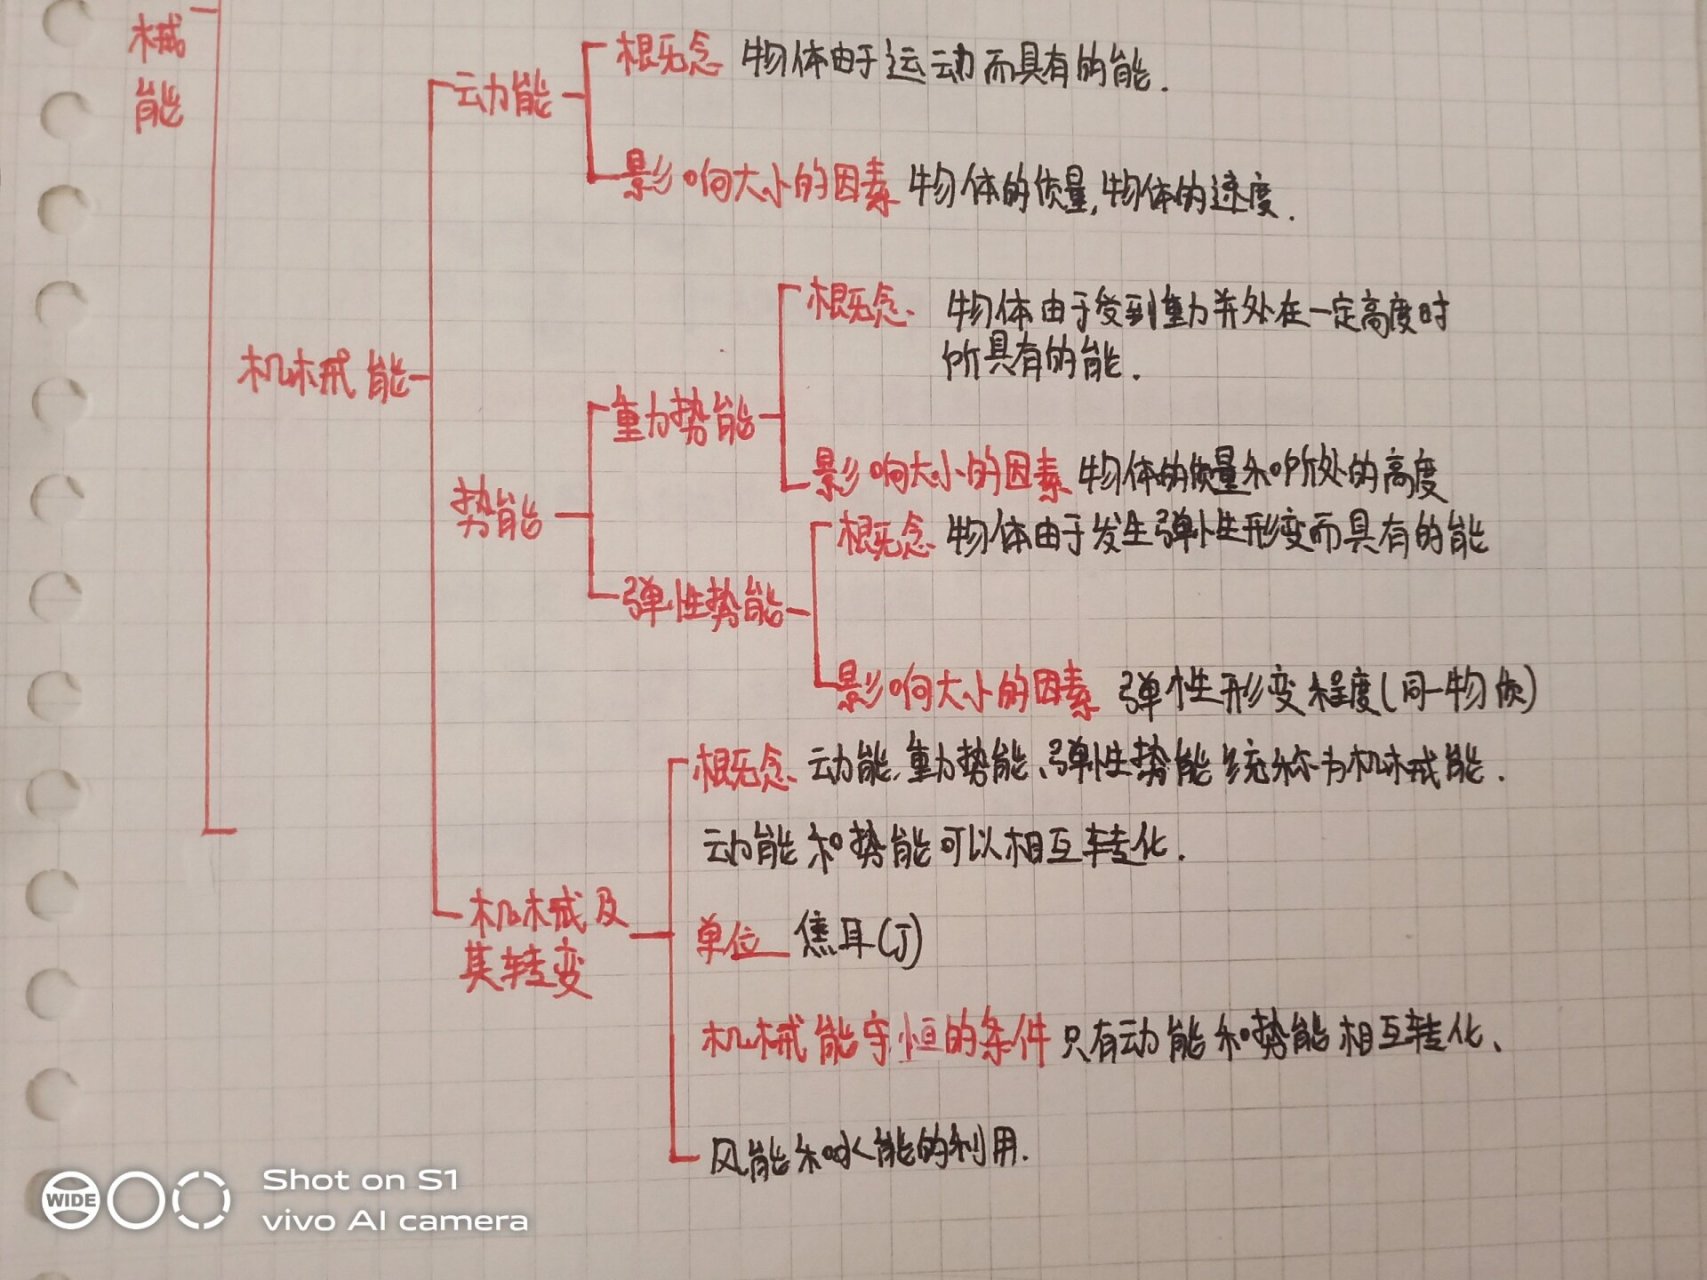 械
能
机械能
动能
概念 物体由于运动而具有的能.
影响大小的因素 物体的质量,物体的速度.
势能
重力势能
概念. 物体由于受到重力并处在一定高度时
所具有的能.
影响大小的因素 物体的质量和所处的高度
弹性势能
概念 物体由于发生弹性形变而具有的能
影响大小的因素 弹性形变程度(同一物质)
机械及
其转变
概念、动能、重力势能、弹性势能统称为机械能.
动能和势能可以相互转化.
单位 焦耳(J)
机械能守恒的条件 只有动能和势能相互转化、
风能和水能的利用.
WIDE
Shot on S1
vivo AI camera